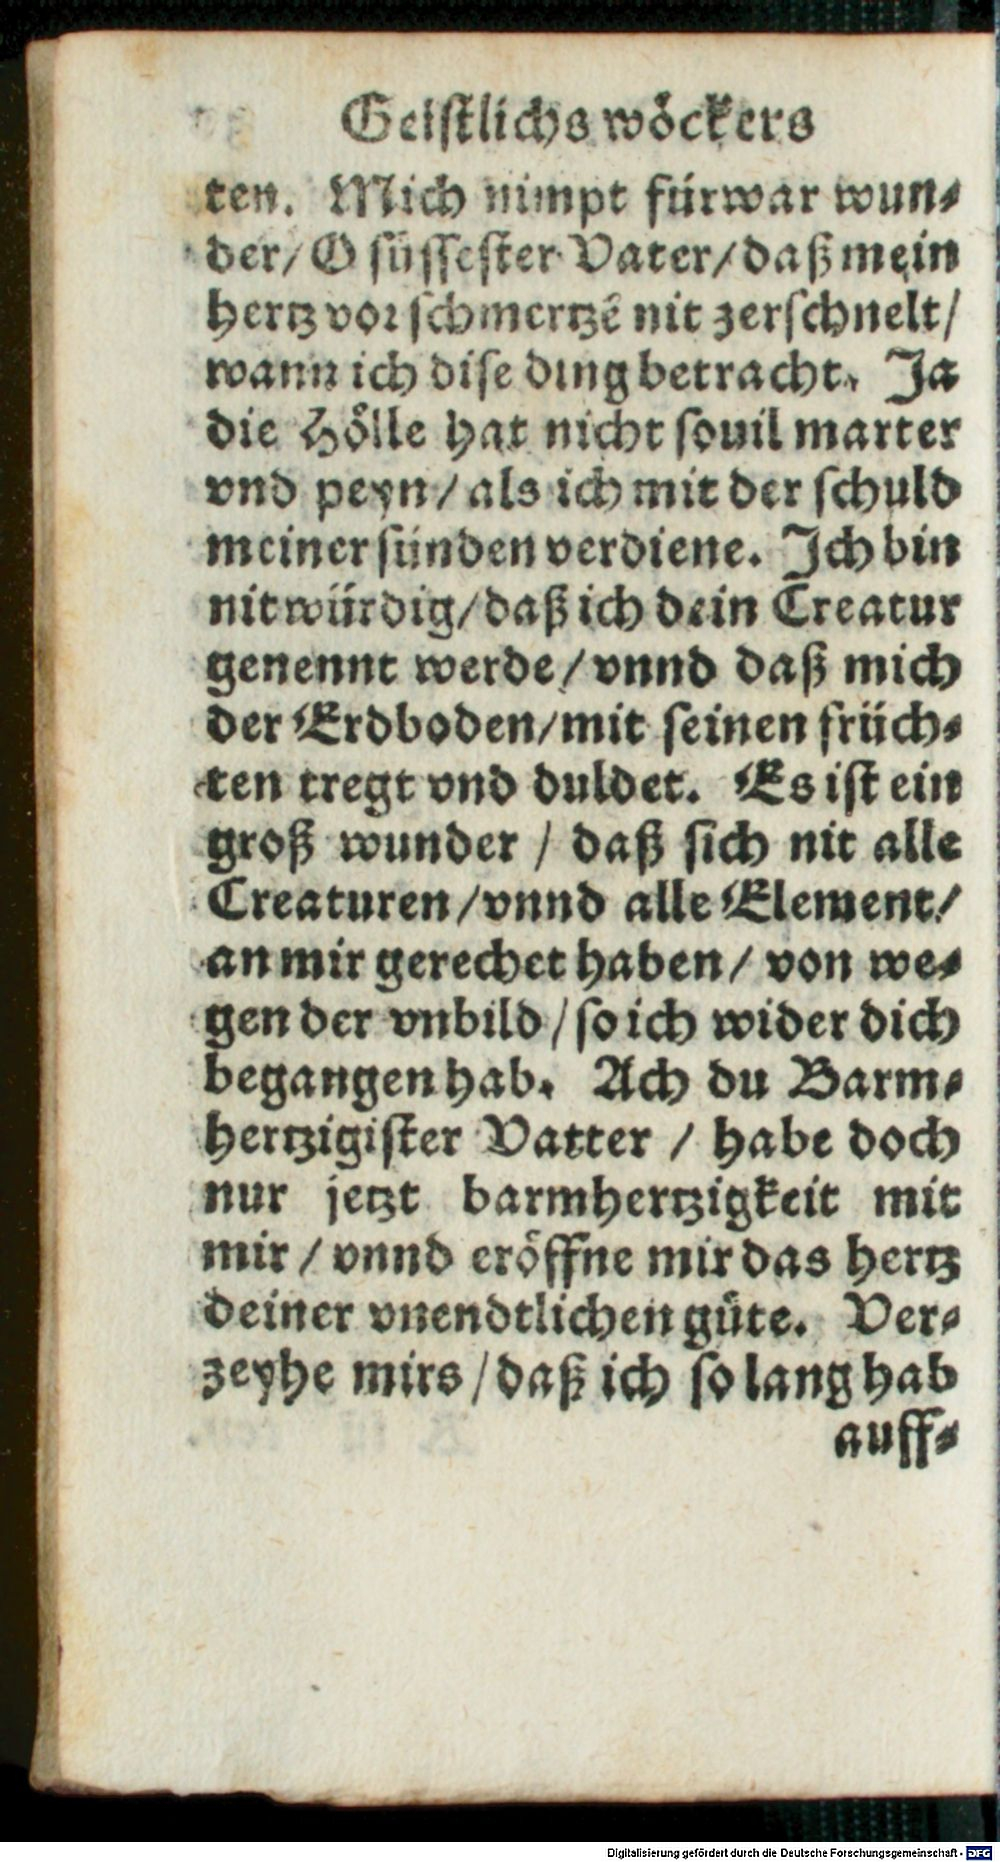 Geistlichs wöckers
ten. Mich nimpt fürwar wun-
der/ O süssester Vater/ daß mein
hertz vor schmertzē nit zerschnelt/
wann ich dise ding betracht. Ja
die Hölle hat nicht souil marter
vnd peyn/ als ich mit der schuld
meiner sünden verdiene. Ich bin
nit würdig/ daß ich dein Creatur
genennt werde/ vnnd daß mich
der Erdboden/ mit seinen früch-
ten tregt vnd duldet. Es ist ein
groß wunder / daß sich nit alle
Creaturen/ vnnd alle Element/
an mir gerechet haben/ von we-
gen der vnbild/ so ich wider dich
begangen hab. Ach du Barm-
hertzigister Vatter / habe doch
nur jetzt barmhertzigkeit mit
mir / vnnd eröffne mir das hertz
deiner vnendtlichen güte. Ver-
zeyhe mirs/ daß ich so lang hab
auff-
Digitalisierung gefördert durch die Deutsche Forschungsgemeinschaft - DFG